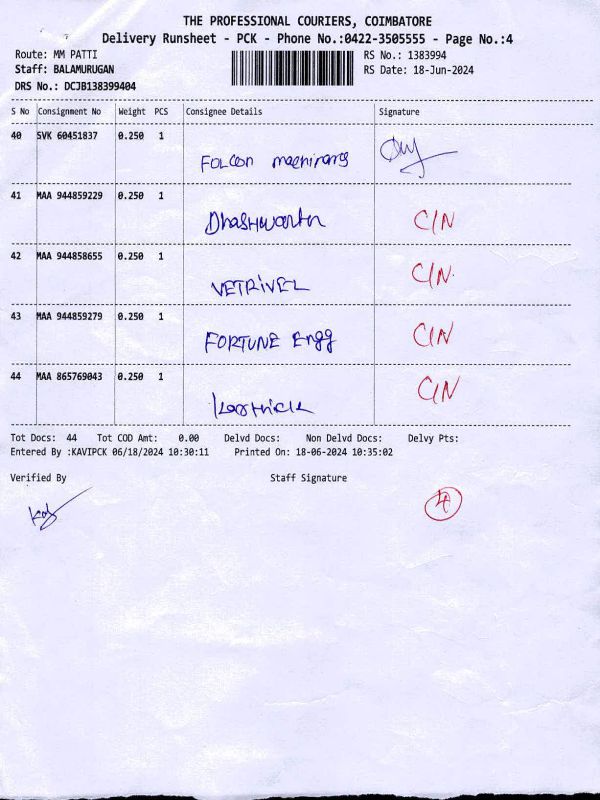 THE PROFESSIONAL COURIERS, COIMBATORE
Delivery Runsheet - PCK - Phone No.:0422-3505555 - Page No.:4
Route: MM PATTI RS No.: 1383994
Staff: BALAMURUGAN RS Date: 18-Jun-2024
DRS No.: DCJB138399404
S No Consignment No Weight PCS Consignee Details Signature
40 SVK 60451837 0.250 1
FOLCON
41 MAA 944859229 0.250 1
Dhashwanth C/N
42 MAA 944858655 0.250 1
VETRIVEL C/N
43 MAA 944859279 0.250 1
FORTUNE Engg C/N
44 MAA 865769043 0.250 1
Karthick C/N
Tot Docs: 44 Tot COD Amt: 0.00 Delvd Docs: Non Delvd Docs: Delvy Pts:
Entered By :KAVIPCK 06/18/2024 10:30:11 Printed On: 18-06-2024 10:35:02
Verified By Staff Signature
4